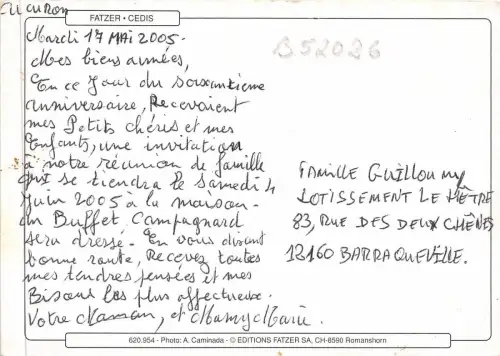 CUCURON
FATZER • CEDIS
Mardi 17 MAI 2005.
Mes biens aimées,
En ce Jour du soixantieme
anniversaire, Recevoient
mes Petits chéris et mes
Enfants, une invitation
à notre réunion de famille
qui se tiendra le samedi 4
Juin 2005 à la maison.
un Buffet Campagnard
sera dressé. En vous disant
bonne route, Recevez toutes
mes tendres pensées et mes
Bisous les plus affectueux.
Votre Maman, et Mamy Marie.
B52026
FAMILLE GUILLOUMY
LOTISSEMENT LE HÊTRE
83, RUE DES DEUX CHÊNES
12160 BARRAQUEVILLE.
620.954 - Photo: A. Caminada - © EDITIONS FATZER SA, CH-8590 Romanshorn